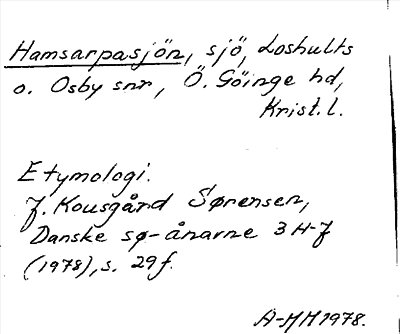 Hamsarpasjön, sjö, Loshults
o. Osby snr, Ö. Göinge hd,
Krist. l.
Etymologi.
J. Kousgård Sørensen,
Danske sø- ånavne 3 H-J
(1978), s. 29 f.
A-MH 1978.